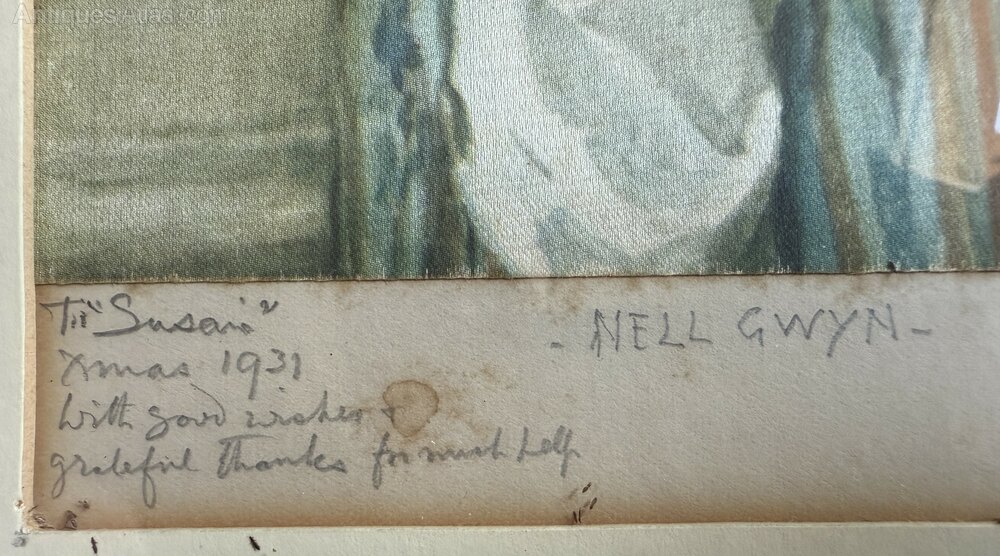 Antiques-Atlas.com
To "Susan"
Xmas 1931
With good wishes +
grateful thanks for much help
- NELL GWYN -